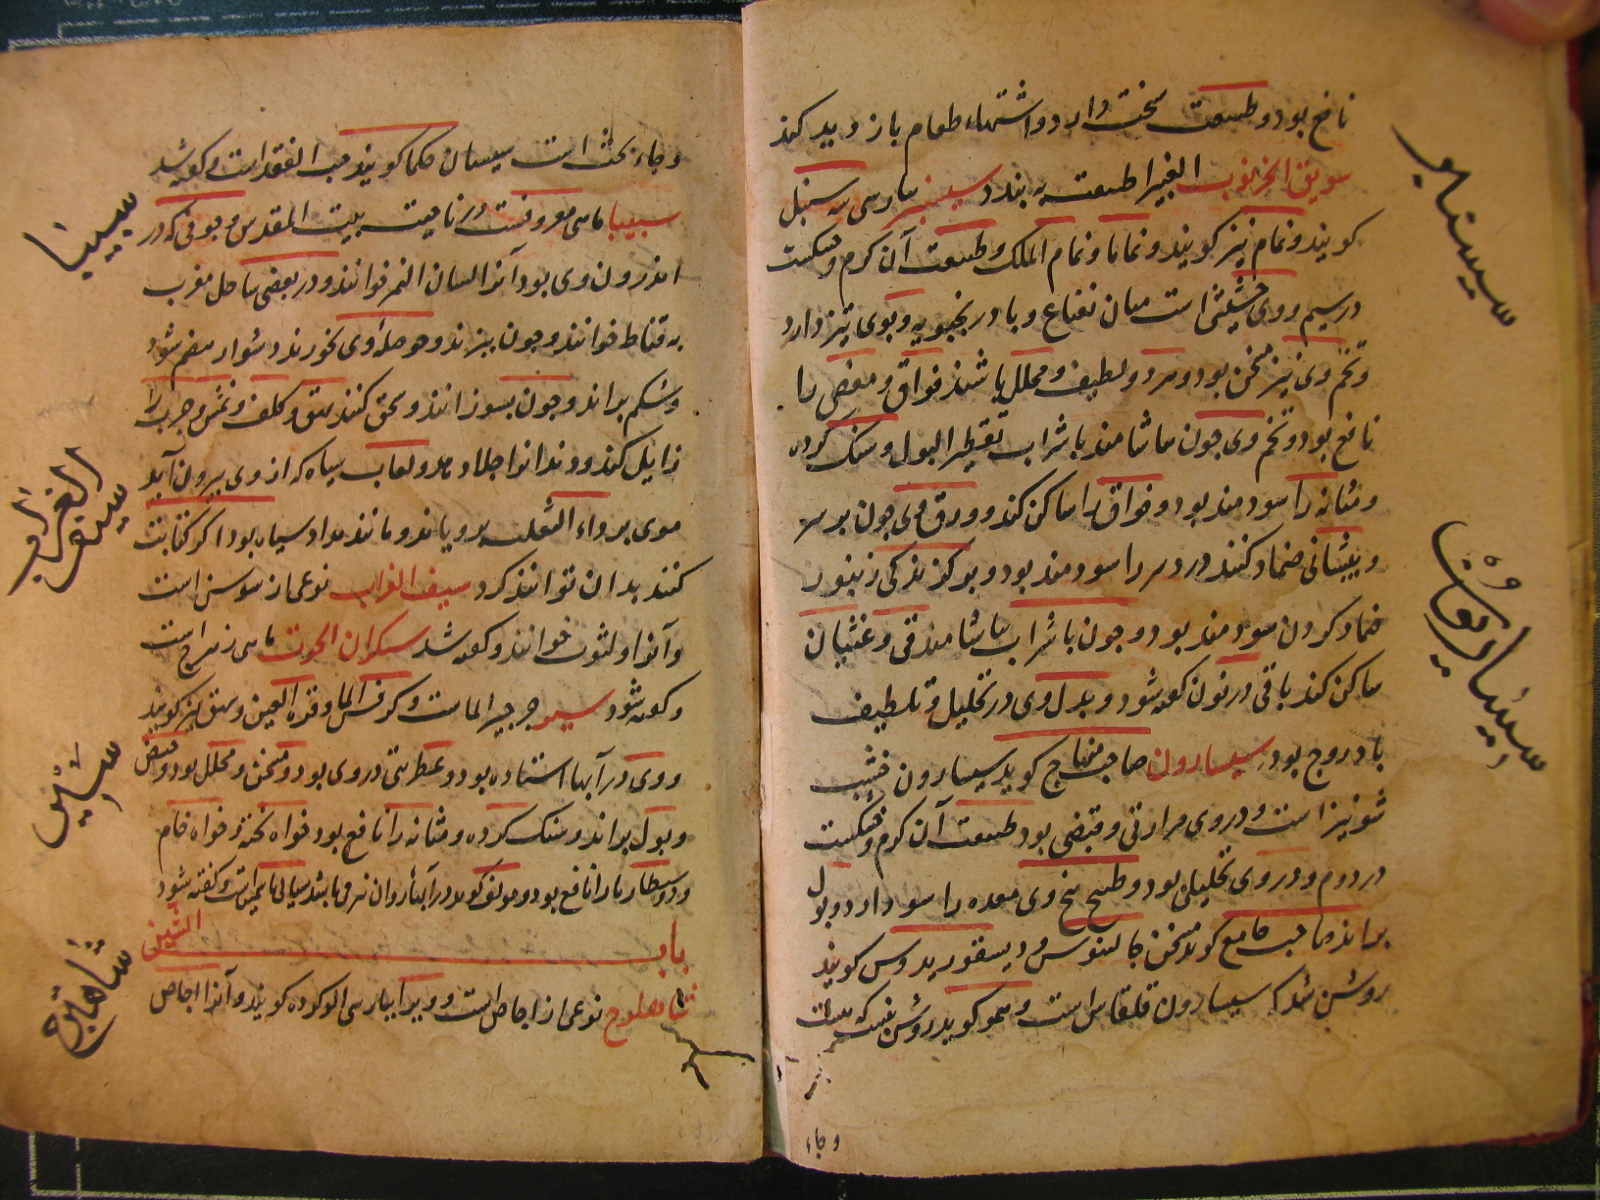 نافع بود و طبیعت سخت دارد و اشتهاء طعام باز دید کند
سویق الخرنوب الغبیرا طبیعت به بندد سیسنبر بپارسی سه سنبل
کویند و نمام نیز کویند و نماما و نمام الملک و طبیعت آن کرم و خشکست
در سیم و وی حشیشی است میان نعناع و بادرنجبویه و بوی تیز دارد
و تخم وی نیز مسخن بود و و لطیف و محلل باشد فواق و مغص را
نافع بود و تخم وی چون بیاشامند با شراب تقطیر البول و سنک کرده
و مثانه را سودمند بود و فواق را ساکن کند و ورق وی چون بر سر
و پیشانی ضماد کنند درد سر را سودمند بود و بر کزندکی زنبور
ضماد کردن سودمند بود و چون با شراب بیاشامند قی و غثیان
ساکن کند باقی در نون کفته شود و بدل وی در تحلیل و تلطیف
بادروج بود سیسارون صاحب منهاج کوید سیسارون خشب
شونیز است و در وی مرارتی و قبضی بود طبیعت آن کرم و خشکست
در دوم و در وی تحلیلی بود و طبیخ بیخ وی معده را سود دارد و بول
براند صاحب جامع کوید سخن جالینوس و دیسقوریدوس کویند
روشن شد که سیسارون قلقاس است و سهو کوید روشن نیست
وجاء
سیسنبر
سیسارون
وجاء بحث است سیسبان حکما کویند حب الفقد است و کفته شد
سیبیا ماهی معروفست در ناحیت بیت المقدس و جوفی که در
اندرون وی بود آنرا لسان البحر خوانند و در بعضی سواحل مغرب
به قناط خوانند و چون بپزند و حوصلهٔ وی بخورند دشوار هضم شود
و شکم براند و چون بسوزانند و سحق کنند بهق و کلف و نمش و جرب را
زایل کند و دندانرا جلا دهد و لعاب سیاه که از وی بیرون آید
موی بر داء الثعلب برویاند و مانند مداد سیاه بود اکر کتابت
کنند بدان توانند کرد سیف الغراب نوعی از سوسن است
و آنرا دلبوث خوانند و کفته شد سکران الحوت ماهی زهرج است
و کفته شود سیر جرجیر الماست و کرفس الما و قرة العین و بهق نیز کویند
و وی در آبها استاده بود و عطریتی در وی بود و مسخن و محلل بود و حیض
و بول براند و سنک کرده و مثانه را نافع بود خواه پخته و خواه خام
و دوسنطاریا را نافع بود و مولف کوید در آبهاء روان
باب الشین
شاهلوج نوعی از اجاص است و ویرا بپارسی الو کرده کویند و آنرا اجاص
سیبیا
سیف الغراب
شاهلوج